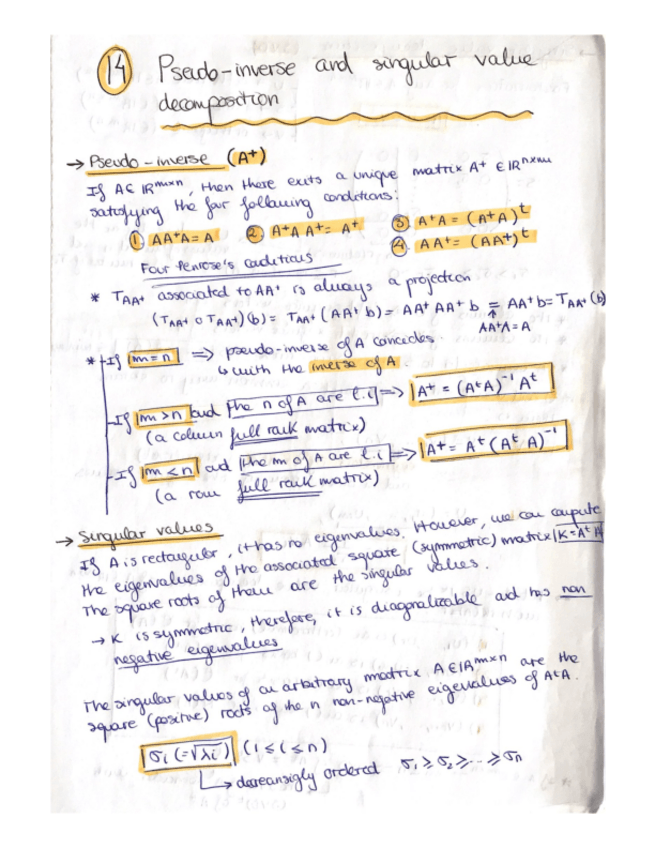 14 Pseudo-inverse and singular value
decomposition
→ Pseudo-inverse (A⁺)
If A∈ ℝᵐˣⁿ, then there exits a unique matrix A⁺ ∈ ℝⁿˣᵐ
satisfying the four following conditions:
① AA⁺A = A ② A⁺A A⁺ = A⁺ ③ A⁺A = (A⁺A)ᵗ
④ AA⁺ = (AA⁺)ᵗ
Four Penrose's conditions
* T_AA⁺ associated to AA⁺ is always a projection
(T_AA⁺ ∘ T_AA⁺)(b) = T_AA⁺ (AA⁺b) = AA⁺AA⁺b = AA⁺b = T_AA⁺(b)
AA⁺A = A
* If m = n ⇒ pseudo-inverse of A concides
↳ with the inverse of A.
If m > n and the n of A are l.i ⇒ A⁺ = (AᵗA)⁻¹ Aᵗ
(a column full rank matrix)
If m < n ad the m of A are l.i ⇒ A⁺ = Aᵗ(AᵗA)⁻¹
(a row full rank matrix)
→ Singular values
If A is rectangular, it has no eigenvalues. However, we can compute
the eigenvalues of the associated square (symmetric) matrix K = Aᵗ A
The square roots of them are the singular values.
→ K is symmetric, therefore, it is diagonalizable and has non
negative eigenvalues
The singular values of an arbitrary matrix A∈ℝᵐˣⁿ are the
square (positive) roots of the n non-negative eigenvalues of AᵗA.
σi (=√λi) (1 ≤ i ≤ n)
↳ decreansigly ordered σ₁ ≥ σ₂ ≥ ... ≥ σn